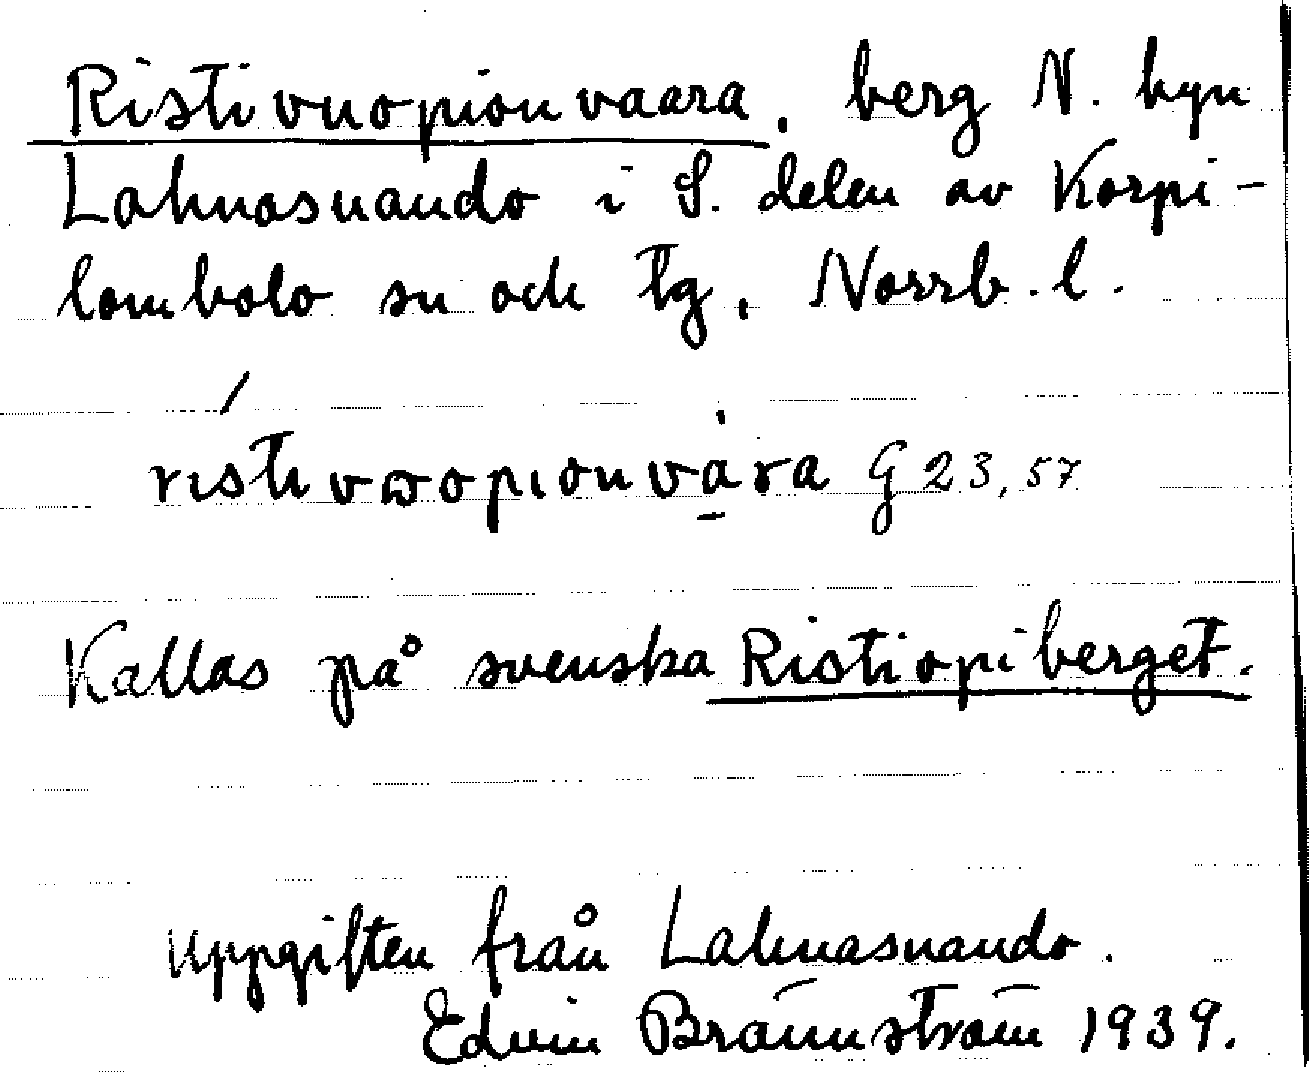 Ristivuopionvaara, berg N. byn
Lahnasuando i S. delen av Korpi-
lombolo sn och tg, Norrb. l.
G 23,57
Kallas på svenska Ristiopiberget.
Uppgiften från Lahnasuando.
Edvin Brännström 1939.